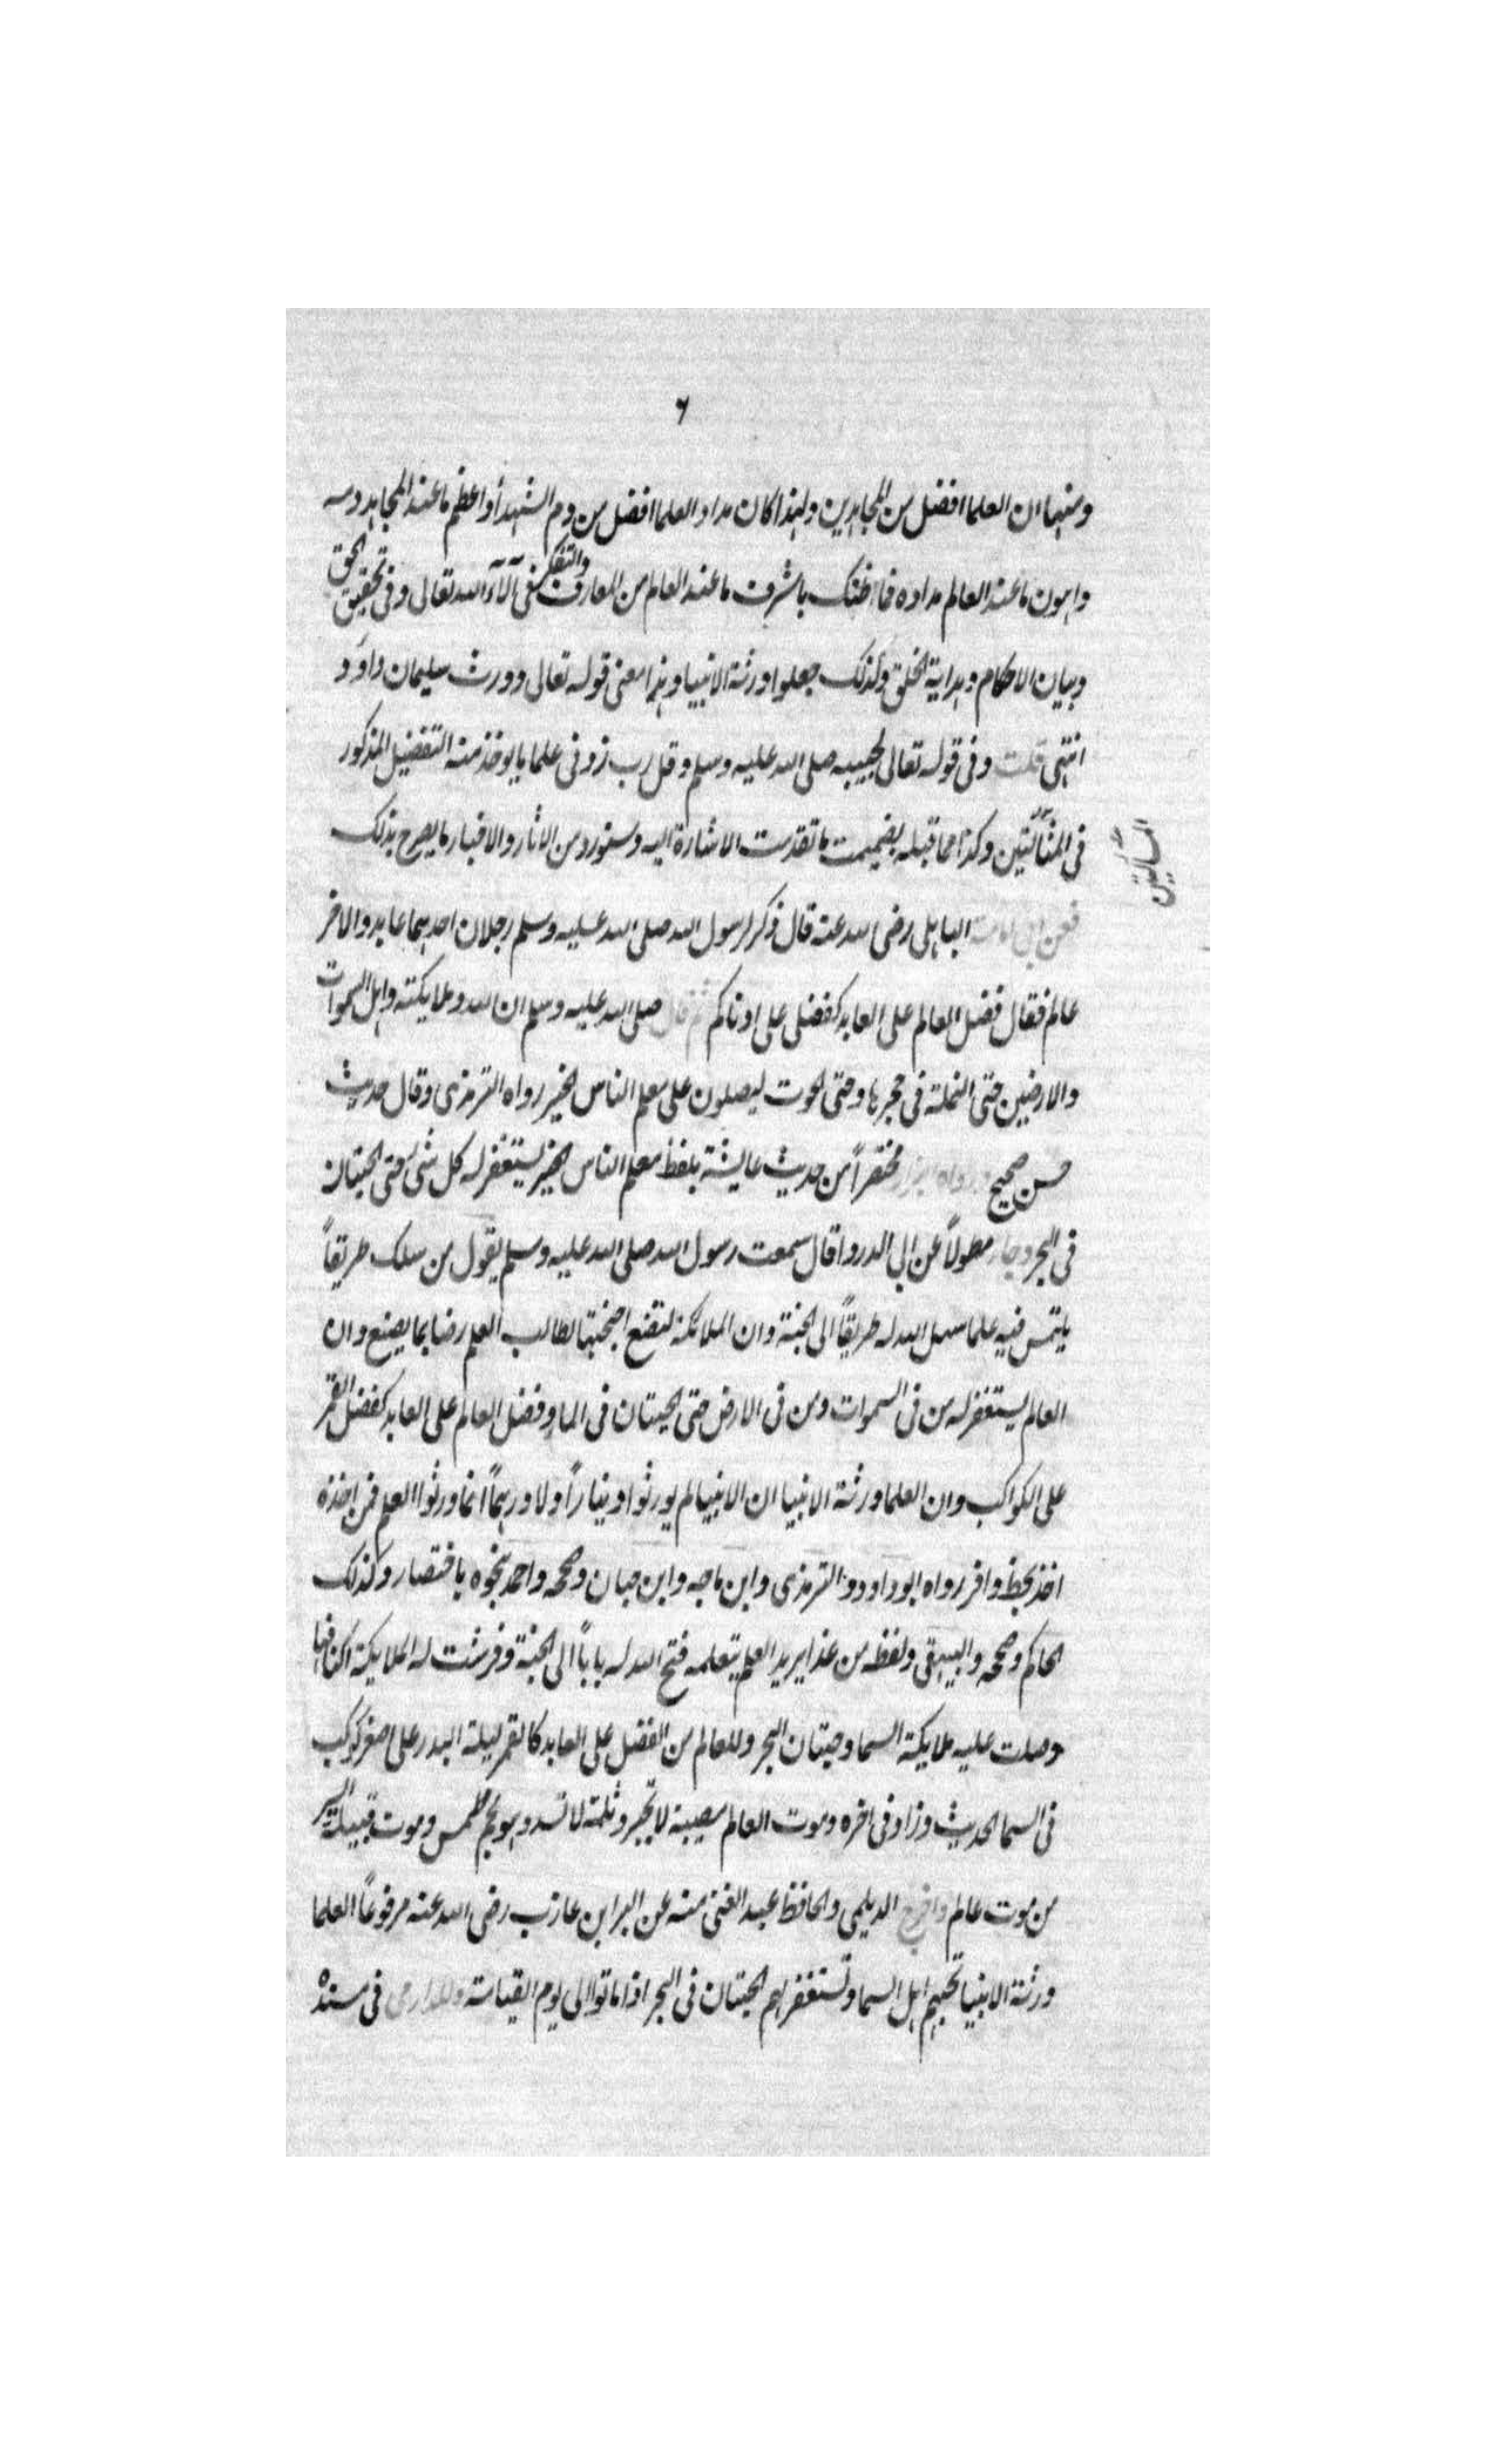 ٦
ومنها ان العلما افضل من المجاهدين ولهذا كان مداد العلما افضل من دم الشهدأ واعظم ما عند المجاهد دمه
واهون ما عند العالم مداده فما ظنك باشرف ما عند العالم من المعارف والتفكر فى آلآء الله تعالى وفى تحقيق الحق
وبيان الاحكام وهداية الخلق ولذلك جعلوا ورثة الانبيا وهذا معنى قوله تعالى وورث سليمان داود
انتهى قلت وفى قوله تعالى لحبيبه صلى الله عليه وسلم وقل رب زدنى علما ما يوخذ منه التفضيل المذكور
فى المسألتين وكذا مما قبله بضميمت ما تقدمت الاشارة اليه وسنورد من الاثار والاخبار ما يصرح بذلك
المسألتين
فعن ابى امامة الباهلى رضى الله عنه قال ذكر لرسول الله صلى الله عليه وسلم رجلان احدهما عابد والاخر
عالم فقال فضل العالم على العابد كفضلى على ادناكم ثم قال صلى الله عليه وسلم ان الله وملايكته واهل السموات
والارضين حتى النملة فى جحرها وحتى الحوت ليصلون على معلم الناس الخير رواه الترمذى وقال حديث
حسن صحيح ورواه البزار مختصراً من حديث عايشة بلفظ معلم الناس الخير يستغفر له كل شى حتى الحيتان
فى البحر وجا مطولاً عن ابى الدردا قال سمعت رسول الله صلى الله عليه وسلم يقول من سلك طريقاً
يلتمس فيه علما سهل الله له طريقاً الى الجنة وان الملائكة لتضع اجنحتها لطالب العلم رضا بما يصنع وان
العالم ليستغفر له من فى السموات ومن فى الارض حتى الحيتان فى الما وفضل العالم على العابد كفضل القمر
على الكواكب وان العلما ورثة الانبيا ان الانبيا لم يورثوا دينارًا ولا درهمًا انما ورثوا العلم فمن اخذه
اخذ بحظ وافر رواه ابو داود والترمذى وابن ماجه وابن حبان وصححه واحمد بنحوه باختصار وكذلك
الحاكم وصححه والبيهقى ولفظه من غدا يريد العلم يتعلمه فتح الله له باباً الى الجنة وفرشت له الملايكة اكنافها
وصلت عليه ملايكة السما وحيتان البحر وللعالم من الفضل على العابد كالقمر ليلة البدر على اصغر كوكب
فى السما الحديث وزاد فى اخره وموت العالم مصيبة لا تجبر وثلمة لا تسد وهو نجم طمس وموت قبيلة ايسر
من موت عالم واخرج الديلمى والحافظ عبد الغنى منه عن البرا بن عازب رضى الله عنه مرفوعاً العلما
ورثة الانبيا تحبهم اهل السما وتستغفر لهم الحيتان فى البحر اذا ماتوا الى يوم القيامة وللدارمى فى مسنده